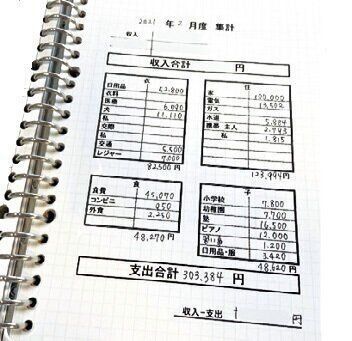 2021 年 2 月度 集計
収入
収入合計 円
衣
日用品 52,800
衣料
医療 6,000
犬 11,110
私
交際
私
交通 5,500
レジャー 7,000
82500円
住
家 100,000
電気 13,502
ガス
水道 5,884
携帯 主人 2,743
私 1,815
123,944円
食
食費 45,070
コンビニ 950
外食 2,250
48,270円
子
小学校 7,800
幼稚園 7,700
塾 16,500
ピアノ 12,000
習い事 1,200
日用品・服 3,420
48,620円
支出合計 303,384 円
収入ー支出 円